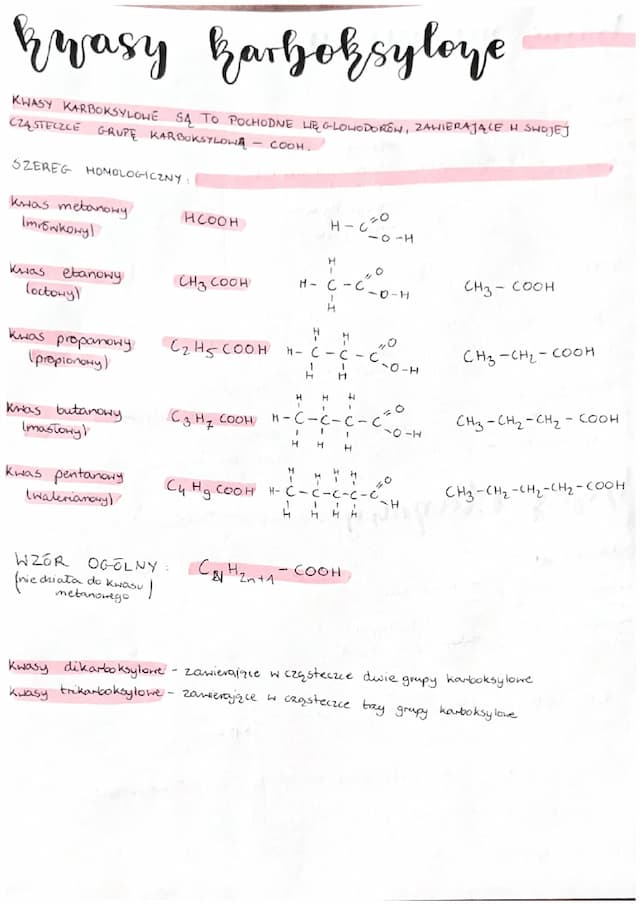 kwasy karboksylowe
KWASY KARBOKSYLOWE SĄ TO POCHODNE WĘGLOWODORÓW, ZAWIERAJĄCE W SWOJEJ
CZĄSTECZCE GRUPĘ KARBOKSYLOWĄ – COOH.
SZEREG HOMOLOGICZNY:
Kwas metanowy
(mrówkowy)
HCOOH
H – C =O
–O –H
Kwas etanowy
(octowy)
CH3 COOH
H
H – C – C =O
–O–H
H
CH3 – COOH
Kwas propanowy
(propionowy)
C2H5 COOH
H H
H – C – C – C =O
–O–H
H H
CH3 –CH2 –COOH
Kwas butanowy
(masłowy)
C3H7 COOH
H H H
H – C – C – C – C =O
–O–H
H H H
CH3 –CH2 –CH2 – COOH
Kwas pentanowy
(walerianowy)
C4H9 COOH
H H H H
H – C – C – C – C – C =O
–H
H H H H
CH3–CH2–CH2–CH2–COOH
WZÓR OGÓLNY:
(nie działa do kwasu
metanowego)
CNH2n+1 – COOH
Kwasy dikarboksylowe – zawierające w cząsteczce dwie grupy karboksylowe
kwasy trikarboksylowe – zawierające w cząsteczce trzy grupy karboksylowe